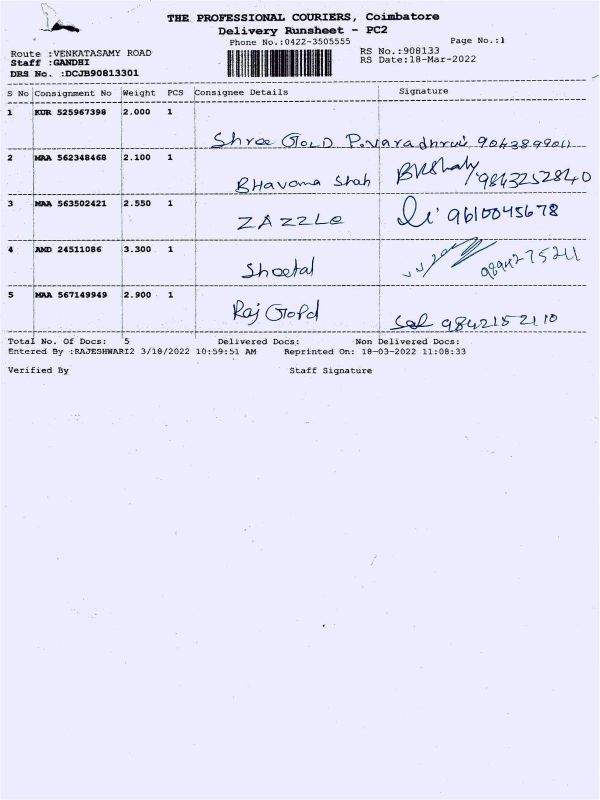 THE PROFESSIONAL COURIERS, Coimbatore
Delivery Runsheet - PC2
Phone No.:0422-3505555 Page No.:1
Route :VENKATASAMY ROAD RS No.:908133
Staff :GANDHI RS Date:18-Mar-2022
DRS No. :DCJB90813301
S No Consignment No Weight PCS Consignee Details Signature
1 KUR 525967398 2.000 1
Shree GOLD
2 MAA 562348468 2.100 1
Bhavana Shah 9843252840
3 MAA 563502421 2.550 1
ZAZZLE 9610045678
4 AMD 24511086 3.300 1
Sheetal
5 MAA 567149949 2.900 1
Raj Gold 9842152110
Total No. Of Docs: 5 Delivered Docs: Non Delivered Docs:
Entered By :RAJESHWARI2 3/18/2022 10:59:51 AM Reprinted On: 18-03-2022 11:08:33
Verified By Staff Signature